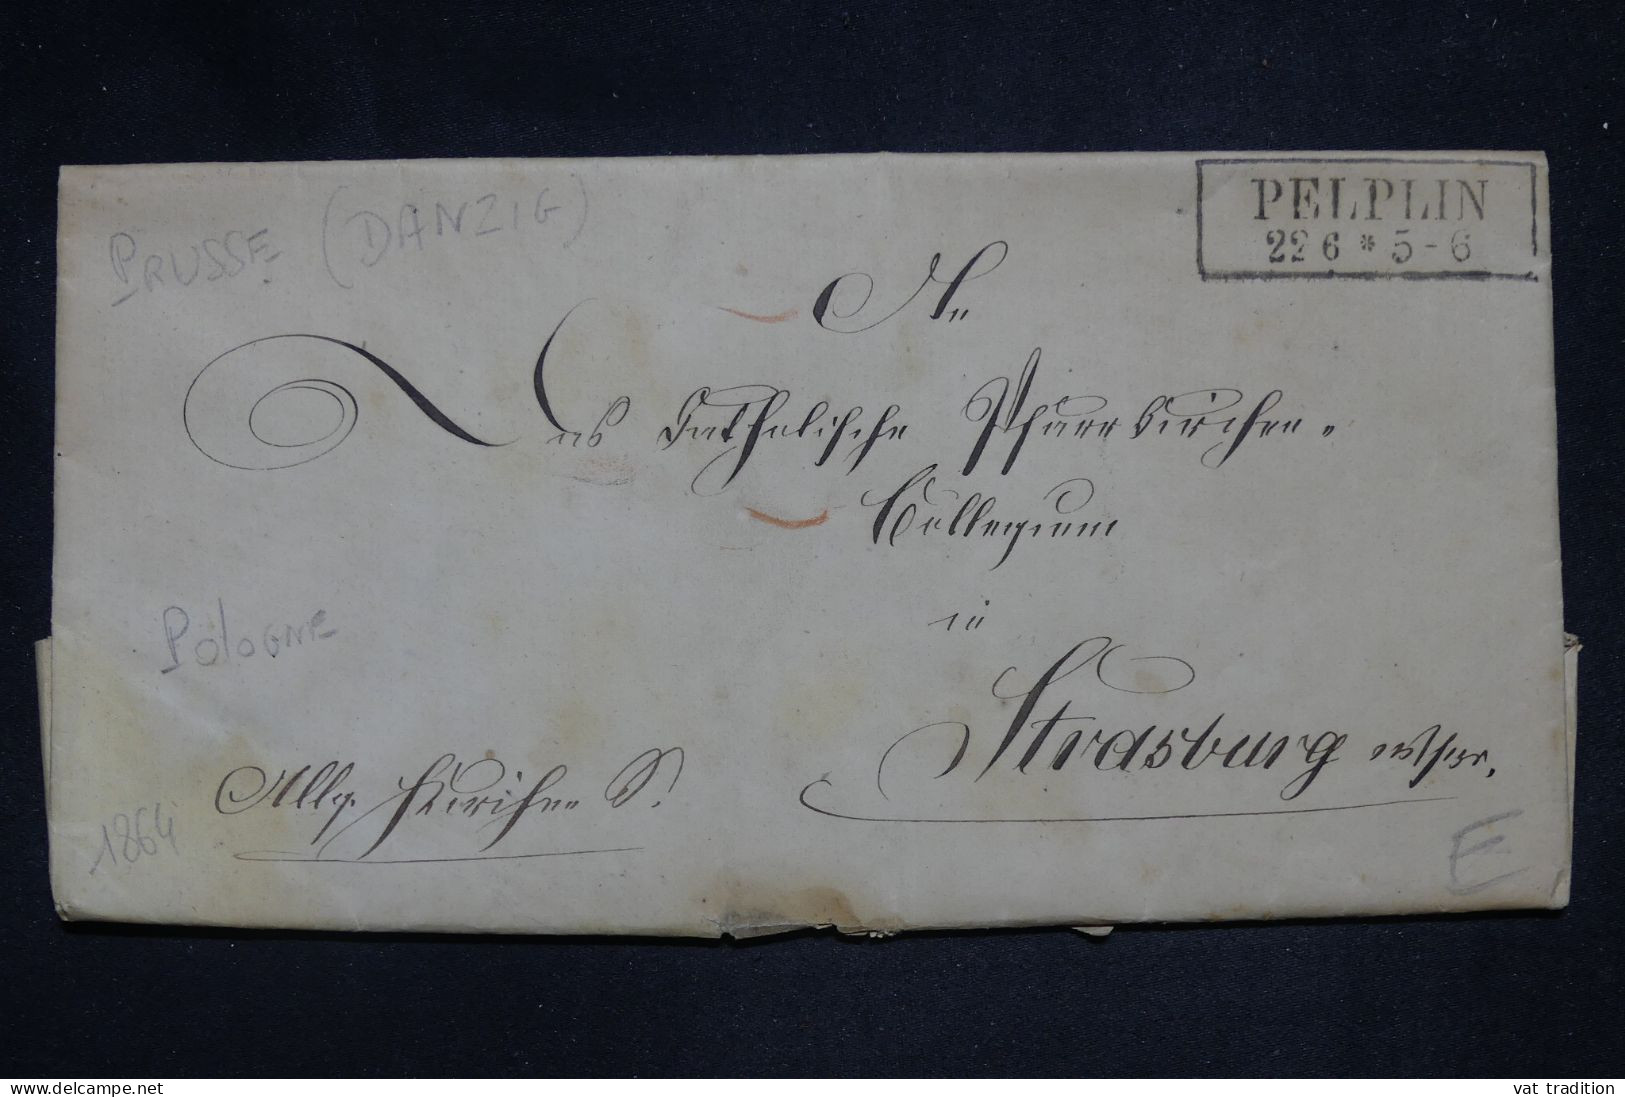 PELPLIN
22 6 * 5-6
PRUSSE (DANZIG)
An
Das Catholische Pfarrkirchen-
Collegium
in
Strasburg w/pr.
POLOGNE
Allg. Kirchen S.
1864
E
www.delcampe.net
vat tradition